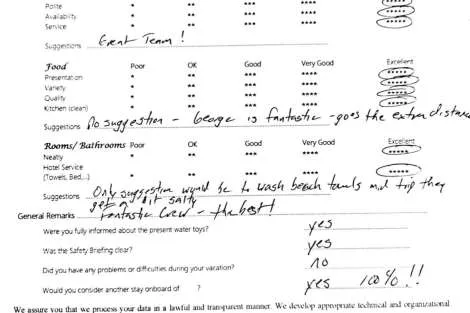 Polite * ** *** **** *****
Availability * ** *** **** *****
Service * ** *** **** *****
Suggestions Great Team !
Food Poor OK Good Very Good Excellent
Presentation * ** *** **** *****
Variety * ** *** **** *****
Quality * ** *** **** *****
Kitchen (clean) * ** *** **** *****
Suggestions No suggestion - George is fantastic - goes the extra distance
Rooms/ Bathrooms Poor OK Good Very Good Excellent
Neatly * ** *** **** *****
Hotel Service
(Towels, Bed,...) * ** *** **** *****
Suggestions Only suggestion would be to wash beach towels mid trip they
get a bit salty
General Remarks Fantastic Crew - the best!
Were you fully informed about the present water toys? yes
Was the Safety Briefing clear? yes
Did you have any problems or difficulties during your vacation? no
Would you consider another stay onboard of ? yes 100% !!
We assure you that we process your data in a lawful and transparent manner. We develop appropriate technical and organizational